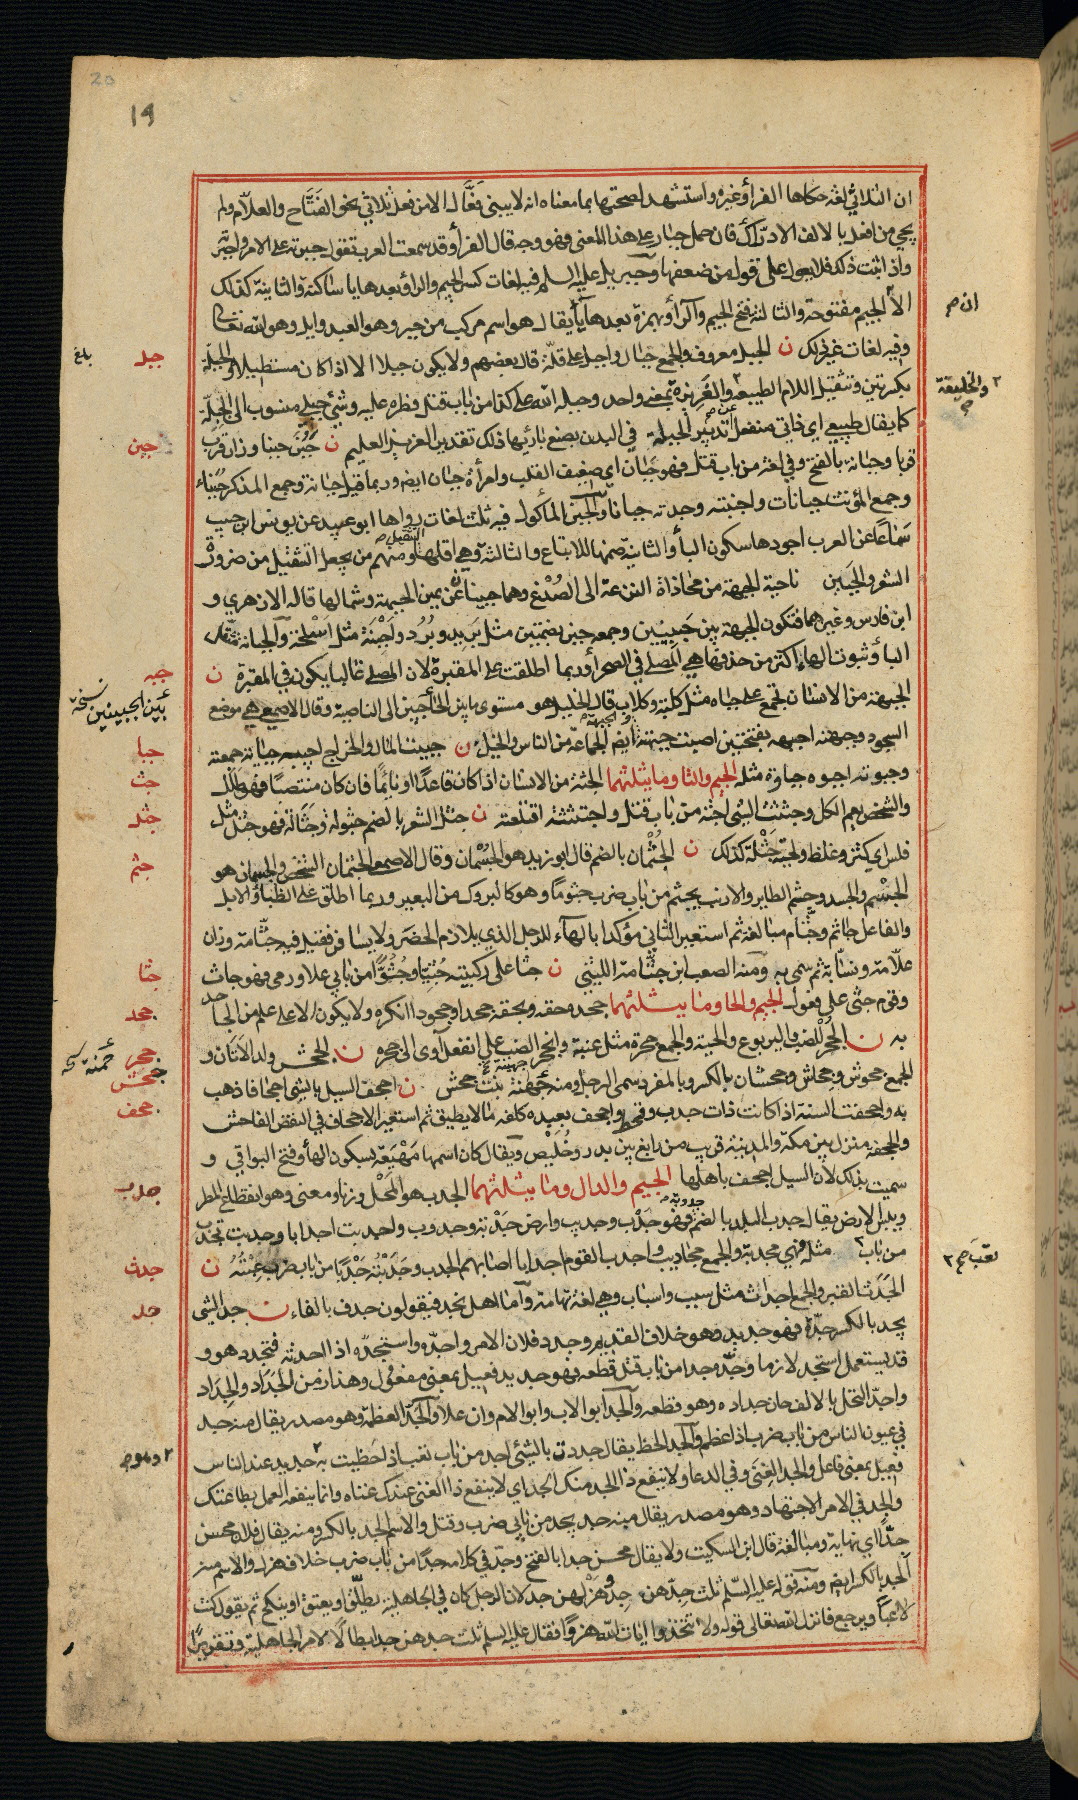 19
ان الثلاثي لغة حكاها الفرأ وغيره واستشهد لصحتها بما معناه انه لا يبنى فعّال الا من فعل ثلاثي نحو الفتّاح والعلّام ولم
يجي من افعل بالالف الا درّاك فان حمل جبار على هذا المعنى فهو وجه قال الفرأ وقد سمعت العرب تقول جبرته على الامر واجبرته
واذا ثبت ذلك فلا يعول على قول من ضعفها وجبريل عليه السلم فيه لغات كسر الجيم والرأ وبعدها يا ساكنة والثانية كذلك
الا الجيم مفتوحة والثالثة فتح الجيم والرأ وبهمزة بعدها يأ يقال هو اسم مركب من جبر وهو العبد وايل وهو الله تعالى
وفيه لغات غير ذلك ن الجبل معروف والجمع جبال واجبل على قلة قال بعضهم ولا يكون جبلا الا اذا كان مستطيلا والجبلّة
بكسرتين وتثقيل اللام الطبيعة والغريزة بمعنى واحد وجبله الله على كذا من باب قتل فطره عليه وشئ جبلي منسوب الى الجبلّة
كما يقال طبيعي اي ذاتي منفعل عن تدبير الجبلة في البدن بصنع بارئها ذلك تقدير العزيز العليم ن جَبُنَ جبنا وزان قرب
قربا وجبانة بالفتح وفي لغة من باب قتل فهو جبان اي ضعيف القلب وامرأة جبان ايضا وربما قيل جبانة وجمع المذكر جبناء
وجمع المؤنث جبانات واجبنته وجدته جبانا والجبن المأكول فيه ثلث لغات رواها ابو عبيد عن يونس ابن حبيب
سَمَاعًا عن العرب اجودها سكون البأ والثانية ضمها للاتباع والثالثة وهي اقلها التثقيل ومنهم من يجعل التثقيل من ضرورة
الشعر والجَبين ناحية الجبهة من محاذاة النزعة الى الصُدْغ وهما جبينان عن يمين الجبهة وشمالها قاله الازهري و
ابن فارس وغيرهما فتكون الجبهة بين جَبِينين وجمعه جبن بضمتين مثل بَريد وبُرُد واَجْبِنَة مثل اَسْلِحَة والجبانة مثقل
البأ وثبوت الهاء اكثر من حذفها هي المصلى في الصحرأ وربما اطلقت على المقبرة لان المصلى غالبا يكون في المقبرة ن
الجبهة من الانسان تجمع على جباه مثل كلبة وكلاب قال الخليل هو مستوى ما بين الحاجبين الى الناصية وقال الاصمعي هي موضع
السجود وجبهته اجبهه بفتحتين اصبت جبهته والجبهة ايضا الجماعة من الناس والخيل ن جبيت المال والخراج اجبيه جباية جمعته
وجبوته اجبوه جباوة مثله الجيم والثا وما يثلثهما الجثة من الانسان اذا كان قاعدًا او نايمًا فان كان منتصبًا فهو طلل
والشخص يعم الكل وجثثت الشئ اجثه من باب قتل واجتثثته اقتلعته ن جثل الشعر بالضم جثولة وجثالة فهو جثل مثل
فلس اي كثر وغلظ ولحية جَثْلة كذلك ن الجُثْمان بالضم قال ابو زيد هو الجُسْمان وقال الاصمعي الجثمان الشخص والجسمان هو
الجسْم والجسد وجثم الطاير والارنب يجثم من باب ضرب جثومًا وهو كالبروك من البعير وربما اطلق على الظبأ والابل
والفاعل جاثم وجثّام مبالغة ثم استعير الثاني مؤكدا بالهاء للرجل الذي يلازم الحضر ولا يسافر فقيل فيه جثّامة وزان
علّامة ونسّابة ثم سمي به ومنه الصعب ابن جثّامة الليثي ن جثا على ركبتيه جُثِيًّا وجُثُوًّا من بابي علا ورمى فهو جاث
وقوم جثى على فعول الجيم والحا وما يثلثهما جحده حقه وبحقه جحدا وجحودا انكره ولا يكون الا على علم من الجاحد
به ن الجُحْر للضب واليربوع والحية والجمع جحرة مثل عنبة وانجحر الضب على انفعل آوى الى جحره ن الجحش ولد الاَتَان و
الجمع جحوش وجحاش وجحشان بالكسر وبالمفرد سمي الرجل ومنه جُهينة بنت جحش ن اجحف السيل بالشئ اجحافا ذهب
به واجحفت السنة اذا كانت ذات جدب وقحط واجحف بعبده كلفه ما لا يطيق ثم استعير الاجحاف في النقص الفاحش
والجحفة منزل بين مكة والمدينة قريب من رابغ بين بدر وخُلَيْص ويقال كان اسمها مَهْيَعَة بسكون الهأ وفتح البواقي و
سميت بذلك لان السيل اجحف باهلها الجيم والدال وما يثلثهما الجدب هو المَحْل وزنا ومعنى وهو انقطاع المطر
ويبس الارض يقال جدب البلد بالضم جدوبة فهو جَدْب وجديب وارض جَدْبة وجدوب واجدبت اجدابا وجدبت تجدب
من باب مثله فهي مجدبة والجمع مجاديب واجدب القوم اجدابا اصابهم الجدب وجَدَبْتُه جَدْبًا من باب ضرب عِبْتُهُ ن
الجَدَث القبر والجمع اجداث مثل سبب واسباب وهي لغة تهامة واما اهل نجد فيقولون جدف بالفاء ن جد الشئ
يجد بالكسر جِدّة فهو جديد وهو خلاف القديم وجدد فلان الامر واجدّه واستجدّه اذا احدثه فتجدد هو و
قد يستعمل استجد لازما وجدّه جدا من باب قتل قطعه فهو جديد فعيل بمعنى مفعول وهذا زمن الجَدَاد والجِدَاد
واجدّ النخل بالالف حان جداده وهو قطعه والجد ابو الاب وابو الام وان علا والجدّ العظمة وهو مصدر يقال منه جد
في عيون الناس من باب ضرب اذا عظم والجد الحظ يقال جددت بالشئ اجد من باب تعب اذا حظيت به جديد عند الناس
فعيل بمعنى فاعل والجد الغِنَى وفي الدعا ولا ينفع ذا الجد منك الجد اي لا ينفع ذا الغنى عندك غناه وانما ينفعه العمل بطاعتك
والجد في الامر الاجتهاد وهو مصدر يقال منه جد يجد من بابي ضرب وقتل والاسم الجد بالكسر ومنه يقال فلان محسن
جدًّا اي نهاية ومبالغة قال ابن السكيت ولا يقال محسن جدا بالفتح وجدّ في كلامه جدًا من باب ضرب خلاف هزل والاسم منه
الجد بالكسر ايضا ومنه قوله عليه السلم ثلث جدّهن جِد وهَزْلهن جد لان الرجل كان في الجاهلية يطلّق او يعتق او ينكح ثم يقول كنت
لاعبًا ويرجع فانزل الله تعالى قوله ولا تتخذوا ايات الله هزوًا فقال عليه السلم ثلث جدهن جد ابطالًا لامر الجاهلية وتقريرًا
ان م
٢ والخليقة
جبل
بلغ
جبن
جبه
بين الجبينين نسخة
جبا
جث
جثل
جثم
جثا
جحد
جحر
حمنة
جحش
جحف
جدب
تعب صح ٢
جدث
جد
٢ وهو